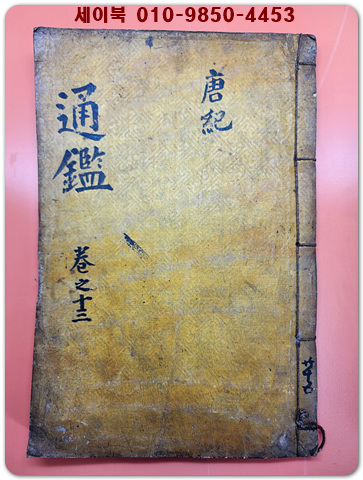 세이북 010-9850-4453
唐紀
通鑑
卷之十三